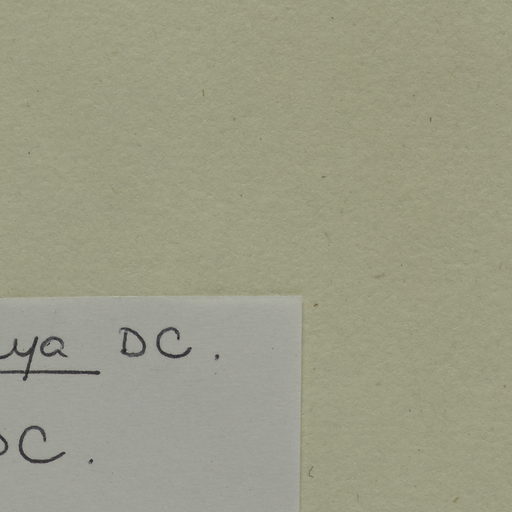 ya DC.
DC.